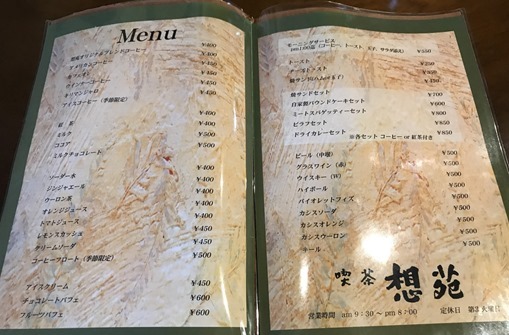 Menu
想苑オリジナルブレンドコーヒー ¥400
アメリカンコーヒー ¥400
カフェオレ ¥450
ウインナーコーヒー ¥450
キリマンジャロ ¥450
アイスコーヒー（季節限定）
紅　茶 ¥400
ミルク ¥400
ココア ¥500
ミルクチョコレート
ソーダー水 ¥400
ジンジャエール ¥400
ウーロン茶 ¥400
オレンジジュース ¥400
トマトジュース ¥400
レモンスカッシュ ¥450
クリームソーダ ¥450
コーヒーフロート（季節限定） ¥500
アイスクリーム ¥450
チョコレートパフェ ¥600
フルーツパフェ ¥600
モーニングサービス
pm1:00迄（コーヒー、トースト、玉子、サラダ添え） ¥550
トースト ¥250
チーズトースト ¥350
焼サンド(ハム・玉子)
焼サンドセット ¥700
自家製パウンドケーキセット ¥600
ミートスパゲッティーセット ¥800
ピラフセット ¥850
ドライカレーセット ¥850
※各セット コーヒー or 紅茶付き
ビール（中瓶） ¥500
グラスワイン（赤） ¥500
ウイスキー（W） ¥500
ハイボール ¥500
バイオレットフィズ ¥500
カシスソーダ ¥500
カシスオレンジ ¥500
カシスウーロン ¥500
¥500
喫茶 想苑
営業時間　am 9：30 〜 pm 8：00　定休日　第3火曜日